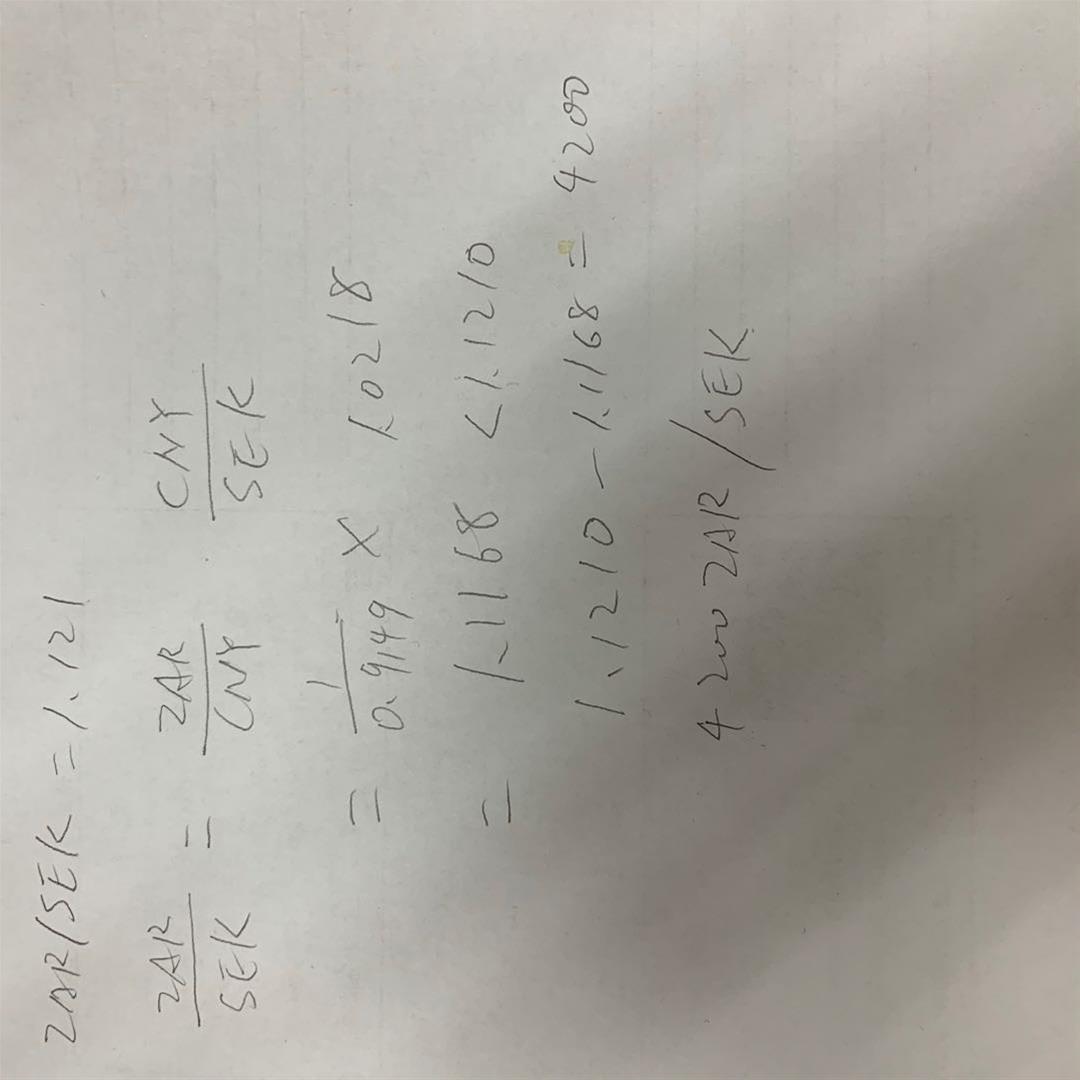 ZAR/SEK = 1.121
ZAR/SEK = ZAR/CNY · CNY/SEK
= 1/0.9149 × 1.0218
= 1.1168 < 1.1210
1.1210 - 1.1168 = 4200
4200 ZAR/SEK